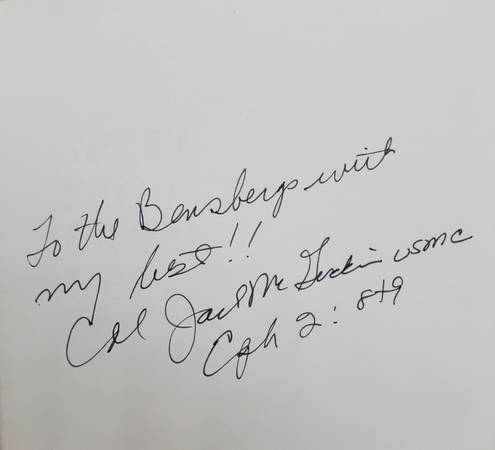 To the Bensbergs with
my best!!
Col Jack Mc Guckin USMC
Eph 2: 8+9